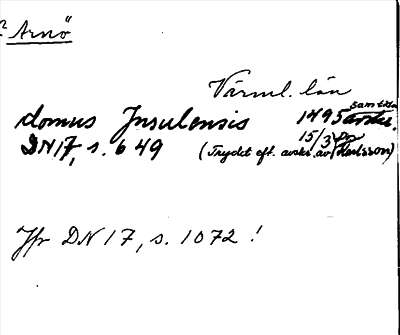 ? Arnö
Värml. län
domus Insulensis 1495 samtida avskr.
DN 17, s. 649 15/3 (Trycket eft. avskr. av Karlsson)
Jfr DN 17, s. 1072 !